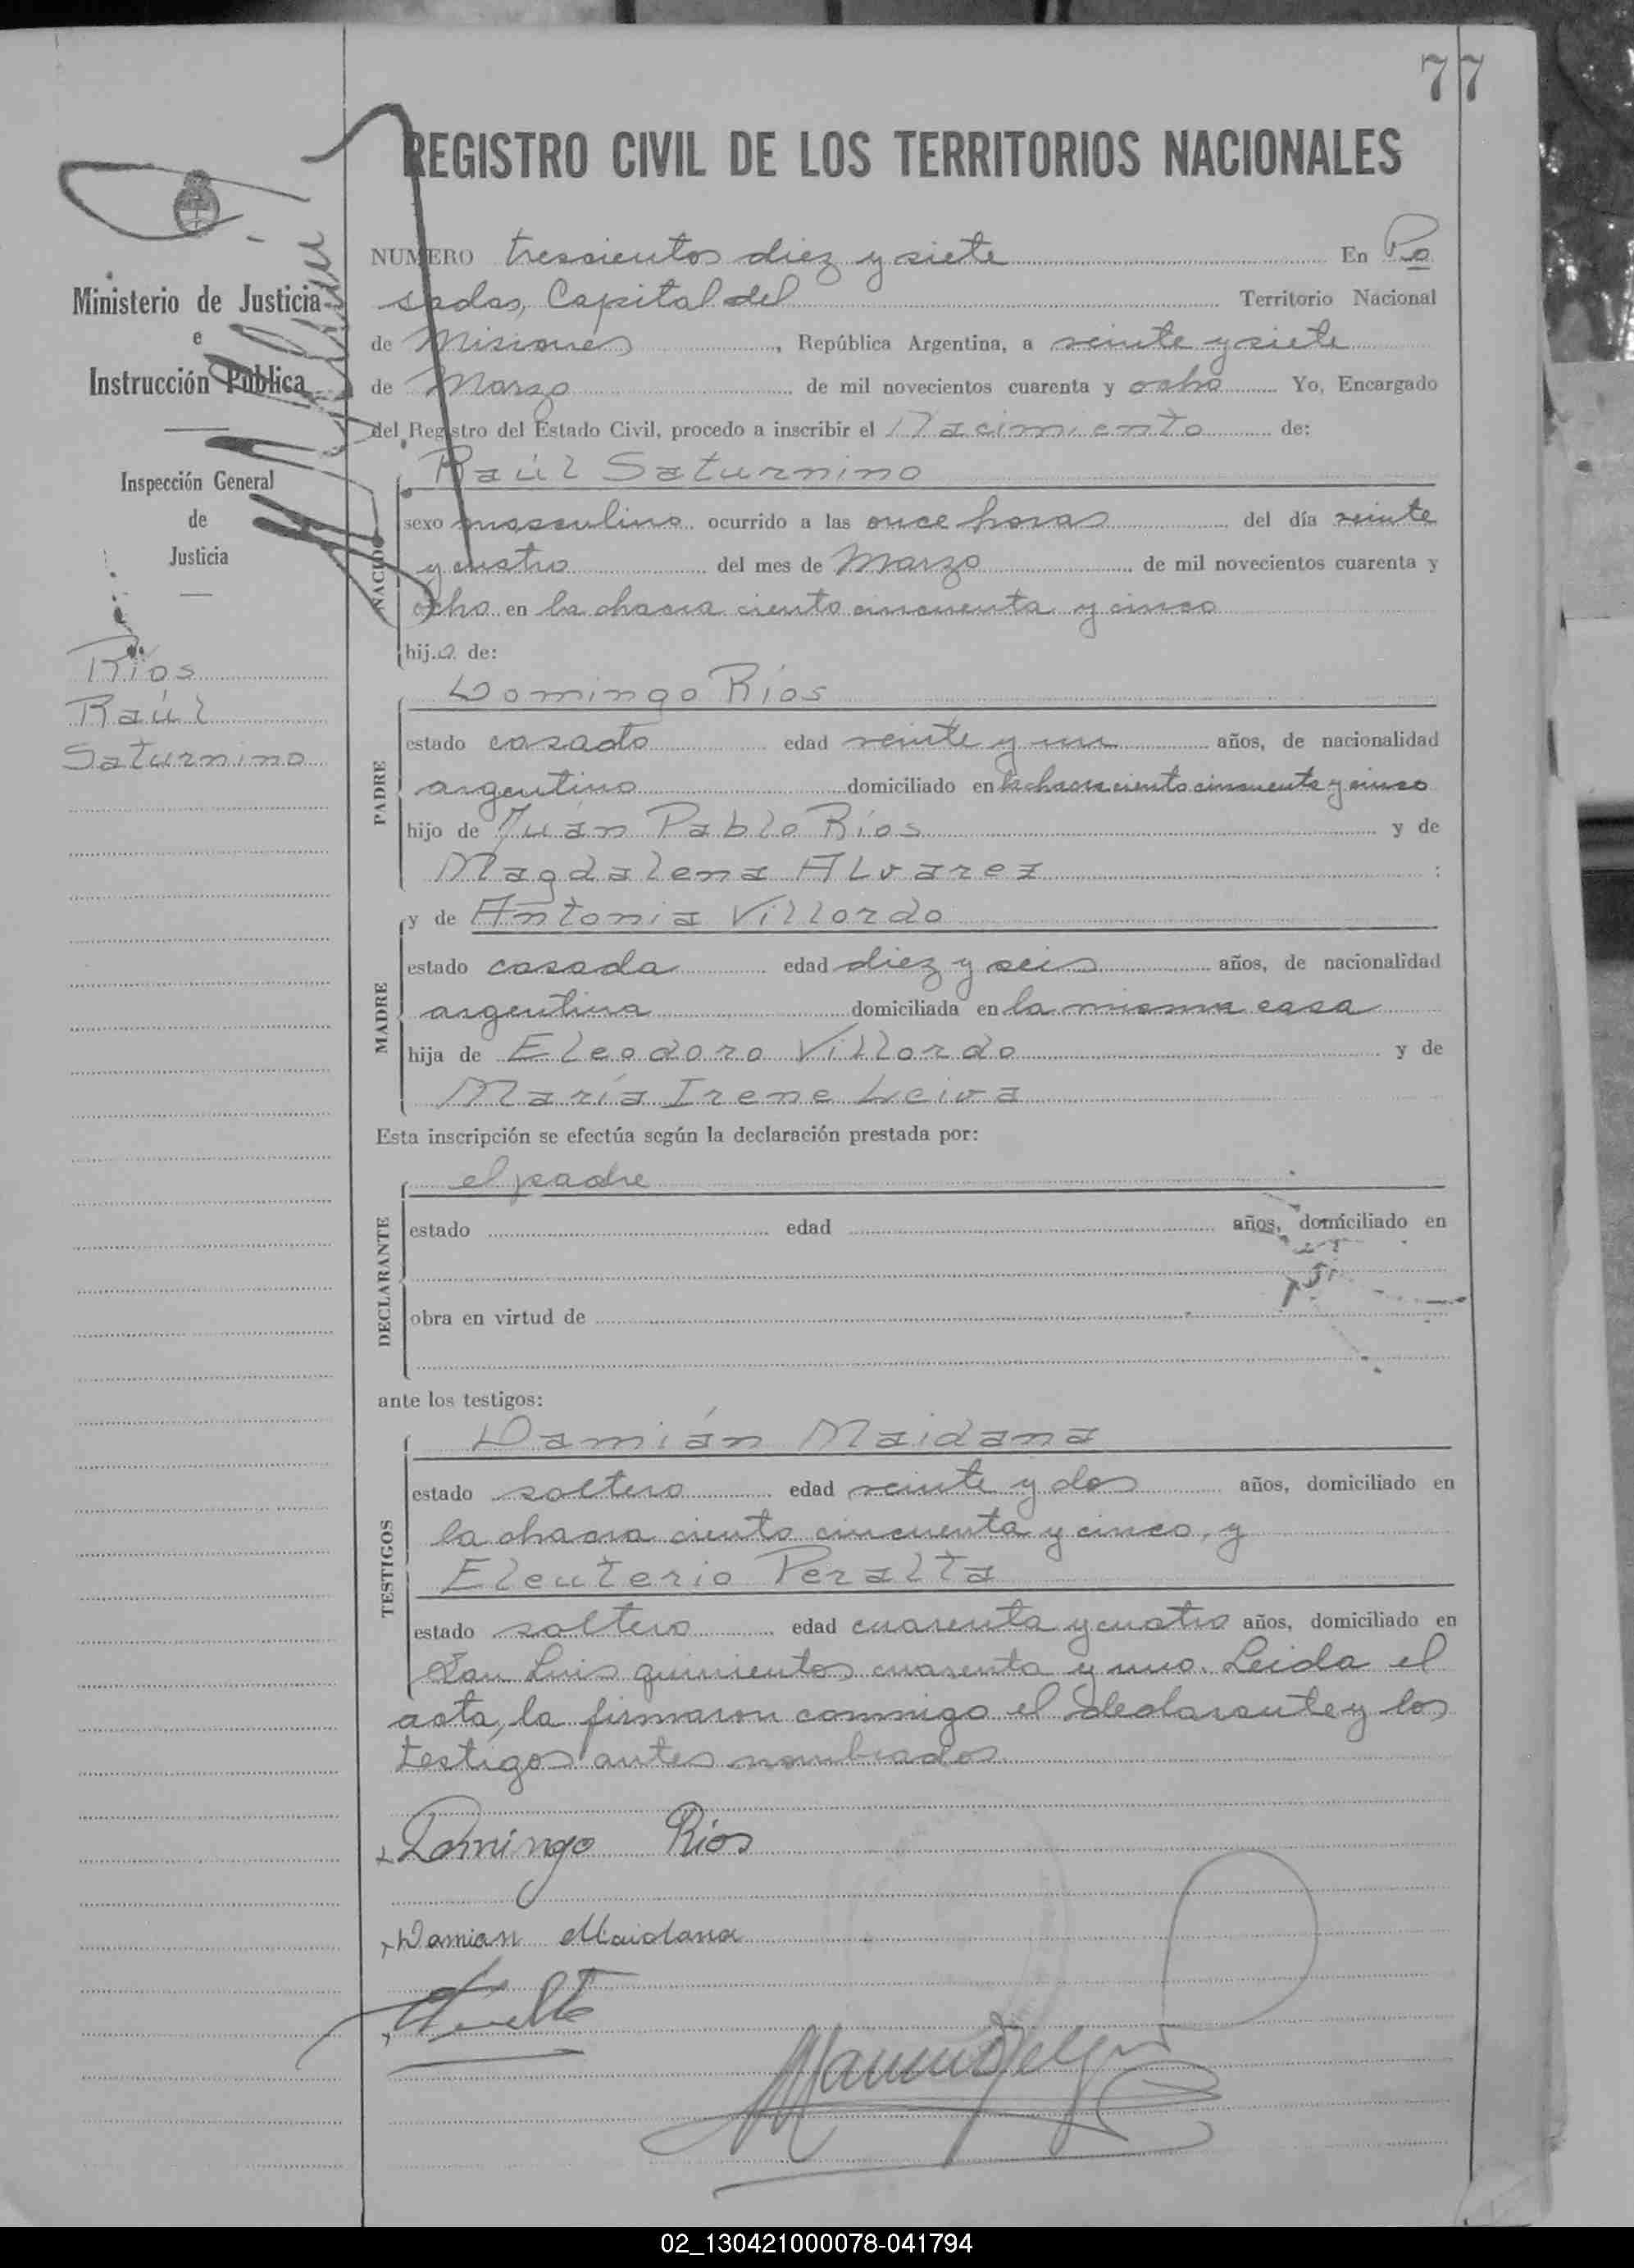 77
REGISTRO CIVIL DE LOS TERRITORIOS NACIONALES
Ministerio de Justicia
e
Instrucción Pública
Inspección General
de
Justicia
Ríos
Raúl
Saturnino
NUMERO trescientos diez y siete En Po
sadas, Capital del Territorio Nacional
de Misiones, República Argentina, a veinte y siete
de Marzo de mil novecientos cuarenta y ocho Yo, Encargado
del Registro del Estado Civil, procedo a inscribir el Nacimiento de:
NACIDO
Raúl Saturnino
sexo masculino ocurrido a las once horas del día veinte
y cuatro del mes de Marzo de mil novecientos cuarenta y
ocho en la chacra ciento cincuenta y cinco
hijo de:
PADRE
Domingo Ríos
estado casado edad veinte y un años, de nacionalidad
argentino domiciliado en la chacra ciento cincuenta y cinco
hijo de Juán Pablo Ríos y de
Magdalena Alvarez :
MADRE
y de Antonia Villordo
estado casada edad diez y seis años, de nacionalidad
argentina domiciliada en la misma casa
hija de Eleodoro Villordo y de
María Irene Leiva
Esta inscripción se efectúa según la declaración prestada por:
DECLARANTE
el padre
estado edad años, domiciliado en
obra en virtud de
ante los testigos:
TESTIGOS
Damián Maidana
estado soltero edad veinte y dos años, domiciliado en
la chacra ciento cincuenta y cinco, y
Eleuterio Peralta
estado soltero edad cuarenta y cuatro años, domiciliado en
San Luis quinientos cuarenta y uno. Leida el
acta, la firmaron conmigo el declarante y los
testigos antes nombrados
Domingo Rios
Damian Maidana
02_130421000078-041794